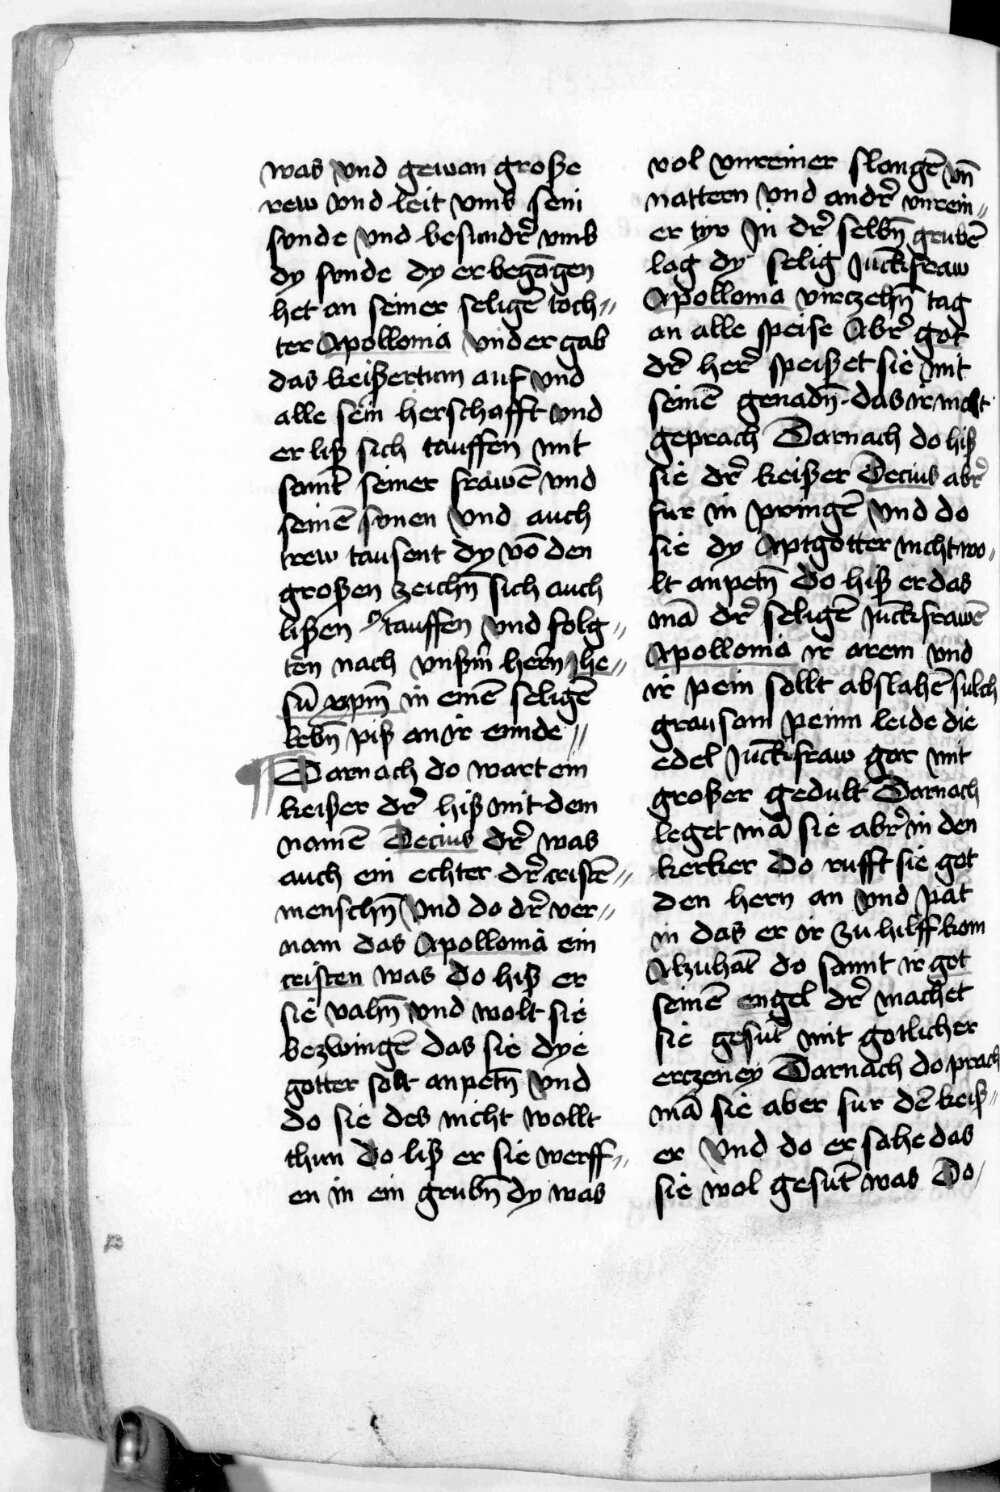 was vnd gewan große
rew vnd leit vmb sein
sunde vnd besundr̄ vmb
dy sunde dy er begāgen
het an seiner seligē toch//
ter Apollonia vnd er gab
das keißertum auf vnd
alle sein herschafft vnd
er liß sich tauffen mit
samt seiner frawē vnd
seinē sonen vnd auch
trew tausent dy vō den
großen zeichn̄ sich auch
lißen tauffen vnd folg//
ten nach vnßm̄ hern Jhe//
sū xpm̄ in einē seligē
lebn̄ piß an ir ennde //
Darnach do wart ein
keißer dr̄ hiß mit dem
namē Decius dr̄ was
auch ein echter dr̄ cristē//
menschn̄ vnd do dr̄ ver//
nam das Apollonia ein
cristen was do hiß er
sie vahn̄ vnd wolt sie
bezwingē das sie dye
gotter solt anpetn̄ vnd
do sie des nicht wollt
thun do liß er sie werff//
en in ein grubn̄ dy was
vol vnreiner slangē vn̄
nattern vnd andr̄ vnrein//
er tyr In dr̄ selbn̄ grubē
lag dy selig Juckfraw
Apollonia virczehn̄ tag
an alle speise Abr̄ got
dr̄ her̄ speißet sie mit
seinē genadn̄ das ir nicht
geprach Darnach do hiß
sie dr̄ keißer Decius abr̄
fur in pringē vnd do
sie dy Aptgotter nicht wo//
lt anpetn̄ do hiß er das
mā dr̄ seligē Juckfrawē
Apollonia ir arem vnd
ir pein sollt abslahē sulch
grausam peinn leide die
edel Juckfraw gar mit
großer gedult Darnach
leget mā sie abr̄ in den
kerker Do rufft sie got
den hern an vnd pat
in das er ir zu hilff kom
Alzuhāt do sannt ir got
seinē engel dr̄ machet
sie gesūt mit gotlicher
erczeney Darnach do prach
mā sie aber fur dē keiß//
er vnd do er sahe das
sie wol gesūt was Do